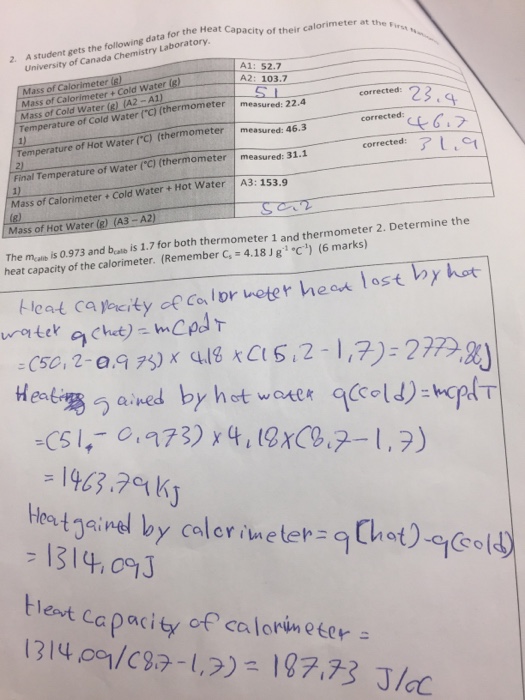 2. A student gets the following data for the Heat Capacity of their calorimeter at the First
University of Canada Chemistry Laboratory.
Mass of Calorimeter (g) A1: 52.7
Mass of Calorimeter + Cold Water (g) A2: 103.7
Mass of Cold Water (g) (A2 – A1) 51
Temperature of Cold Water (°C) (thermometer 1) measured: 22.4 corrected: 23.4
Temperature of Hot Water (°C) (thermometer 2) measured: 46.3 corrected: 46.7
Final Temperature of Water (°C) (thermometer 1) measured: 31.1 corrected: 31.9
Mass of Calorimeter + Cold Water + Hot Water (g) A3: 153.9
Mass of Hot Water (g) (A3 – A2) 50.2
The mcalib is 0.973 and bcalib is 1.7 for both thermometer 1 and thermometer 2. Determine the
heat capacity of the calorimeter. (Remember Cs = 4.18 J g⁻¹ °C⁻¹) (6 marks)
Heat capacity of calorimeter heat lost by hot
water q(hot) = mCpdT
= (50,2-0,973) x 4.18 x (15,2-1,7) = 2777,88J
Heating gained by hot water q(cold) = mcpdT
= (51,- 0,973) x 4,18 x (8,7-1,7)
= 1463,79 KJ
Heat gained by calorimeter = q(hot)-q(cold)
= 1314,09J
Heat capacity of calorimeter =
1314,09/(8,7-1,7) = 187,73 J/oC